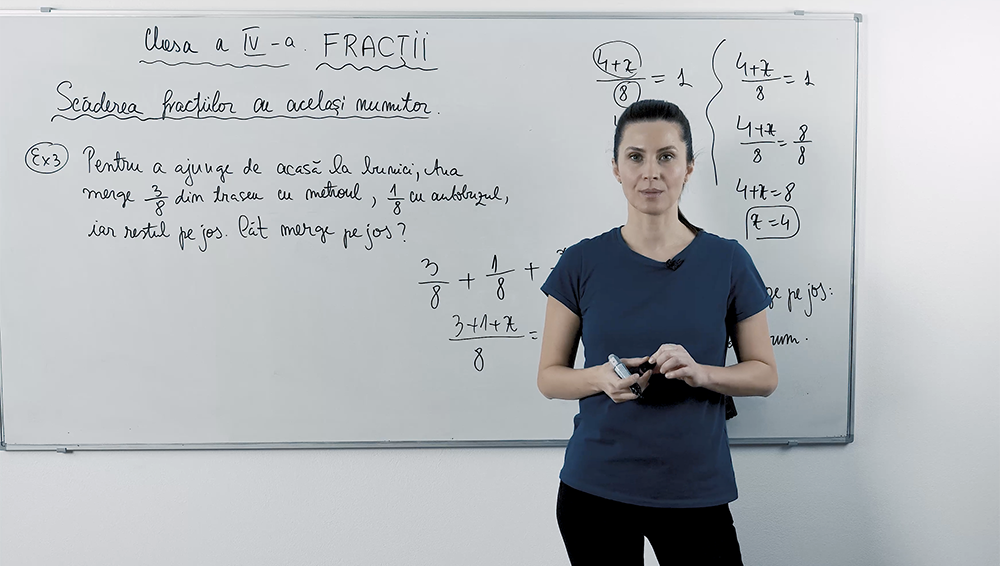 Clasa a IV-a. FRACȚII
Scăderea fracțiilor cu același numitor.
Ex3 Pentru a ajunge de acasă la bunici, Ana
merge 3/8 din traseu cu metroul, 1/8 cu autobuzul,
iar restul pe jos. Cât merge pe jos?
3/8 + 1/8 +
3+1+x/8 =
4+x/8 = 1
4+x/8 = 1
4+x/8 = 8/8
4+x = 8
x = 4
pe jos: